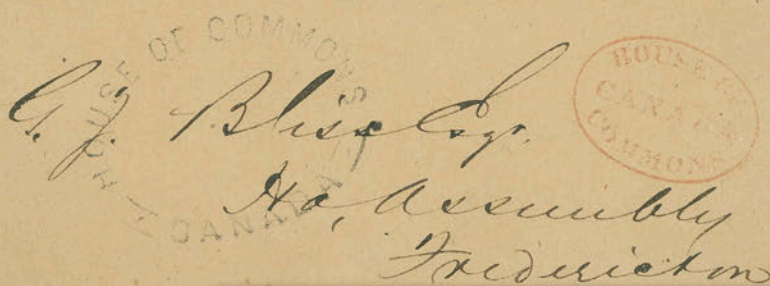 HOUSE OF COMMONS
CANADA
HOUSE OF
CANADA
COMMONS
G. J. Bliss Esqr.
Ho, Assembly
Fredericton